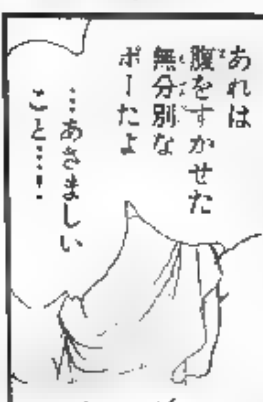 あれは
腹をすかせた
無分別な
ポーたよ
…あさましい
こと…！